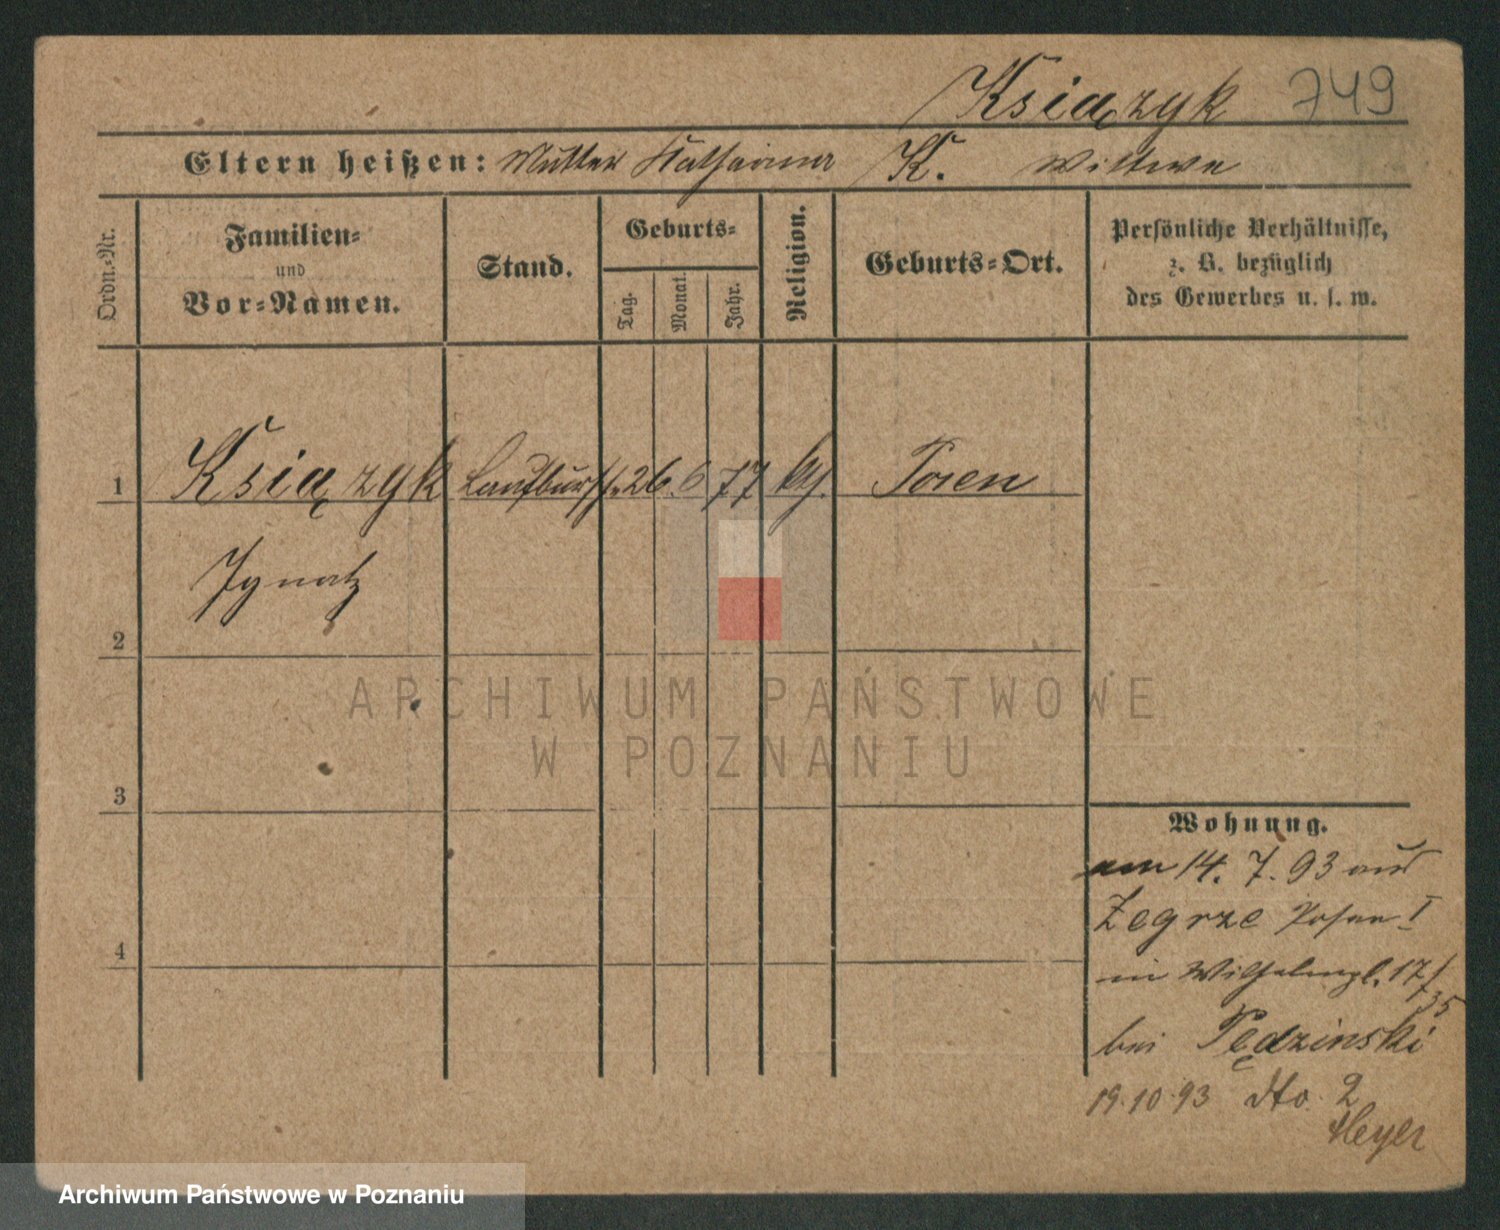 Książyk 749
Eltern heißen: Mutter Katharina K. Wittwe
Ordn.-Nr.
Familien-
und
Vor-Namen.
Stand.
Geburts-
Tag.
Monat.
Jahr.
Religion.
Geburts-Ort.
Persönliche Verhältnisse,
z. B. bezüglich
des Gewerbes u. s. w.
1 Książyk Laufbursch 26. 6 77 Posen
Ignatz
2
3
4
Wohnung.
am 14. 7. 93 aus
Zegrze Posen I
in Wilhelmpl. 17/
35
bei
19.10.93 dto. 2
Meyer
ARCHIWUM PAŃSTWOWE
W POZNANIU
Archiwum Państwowe w Poznaniu